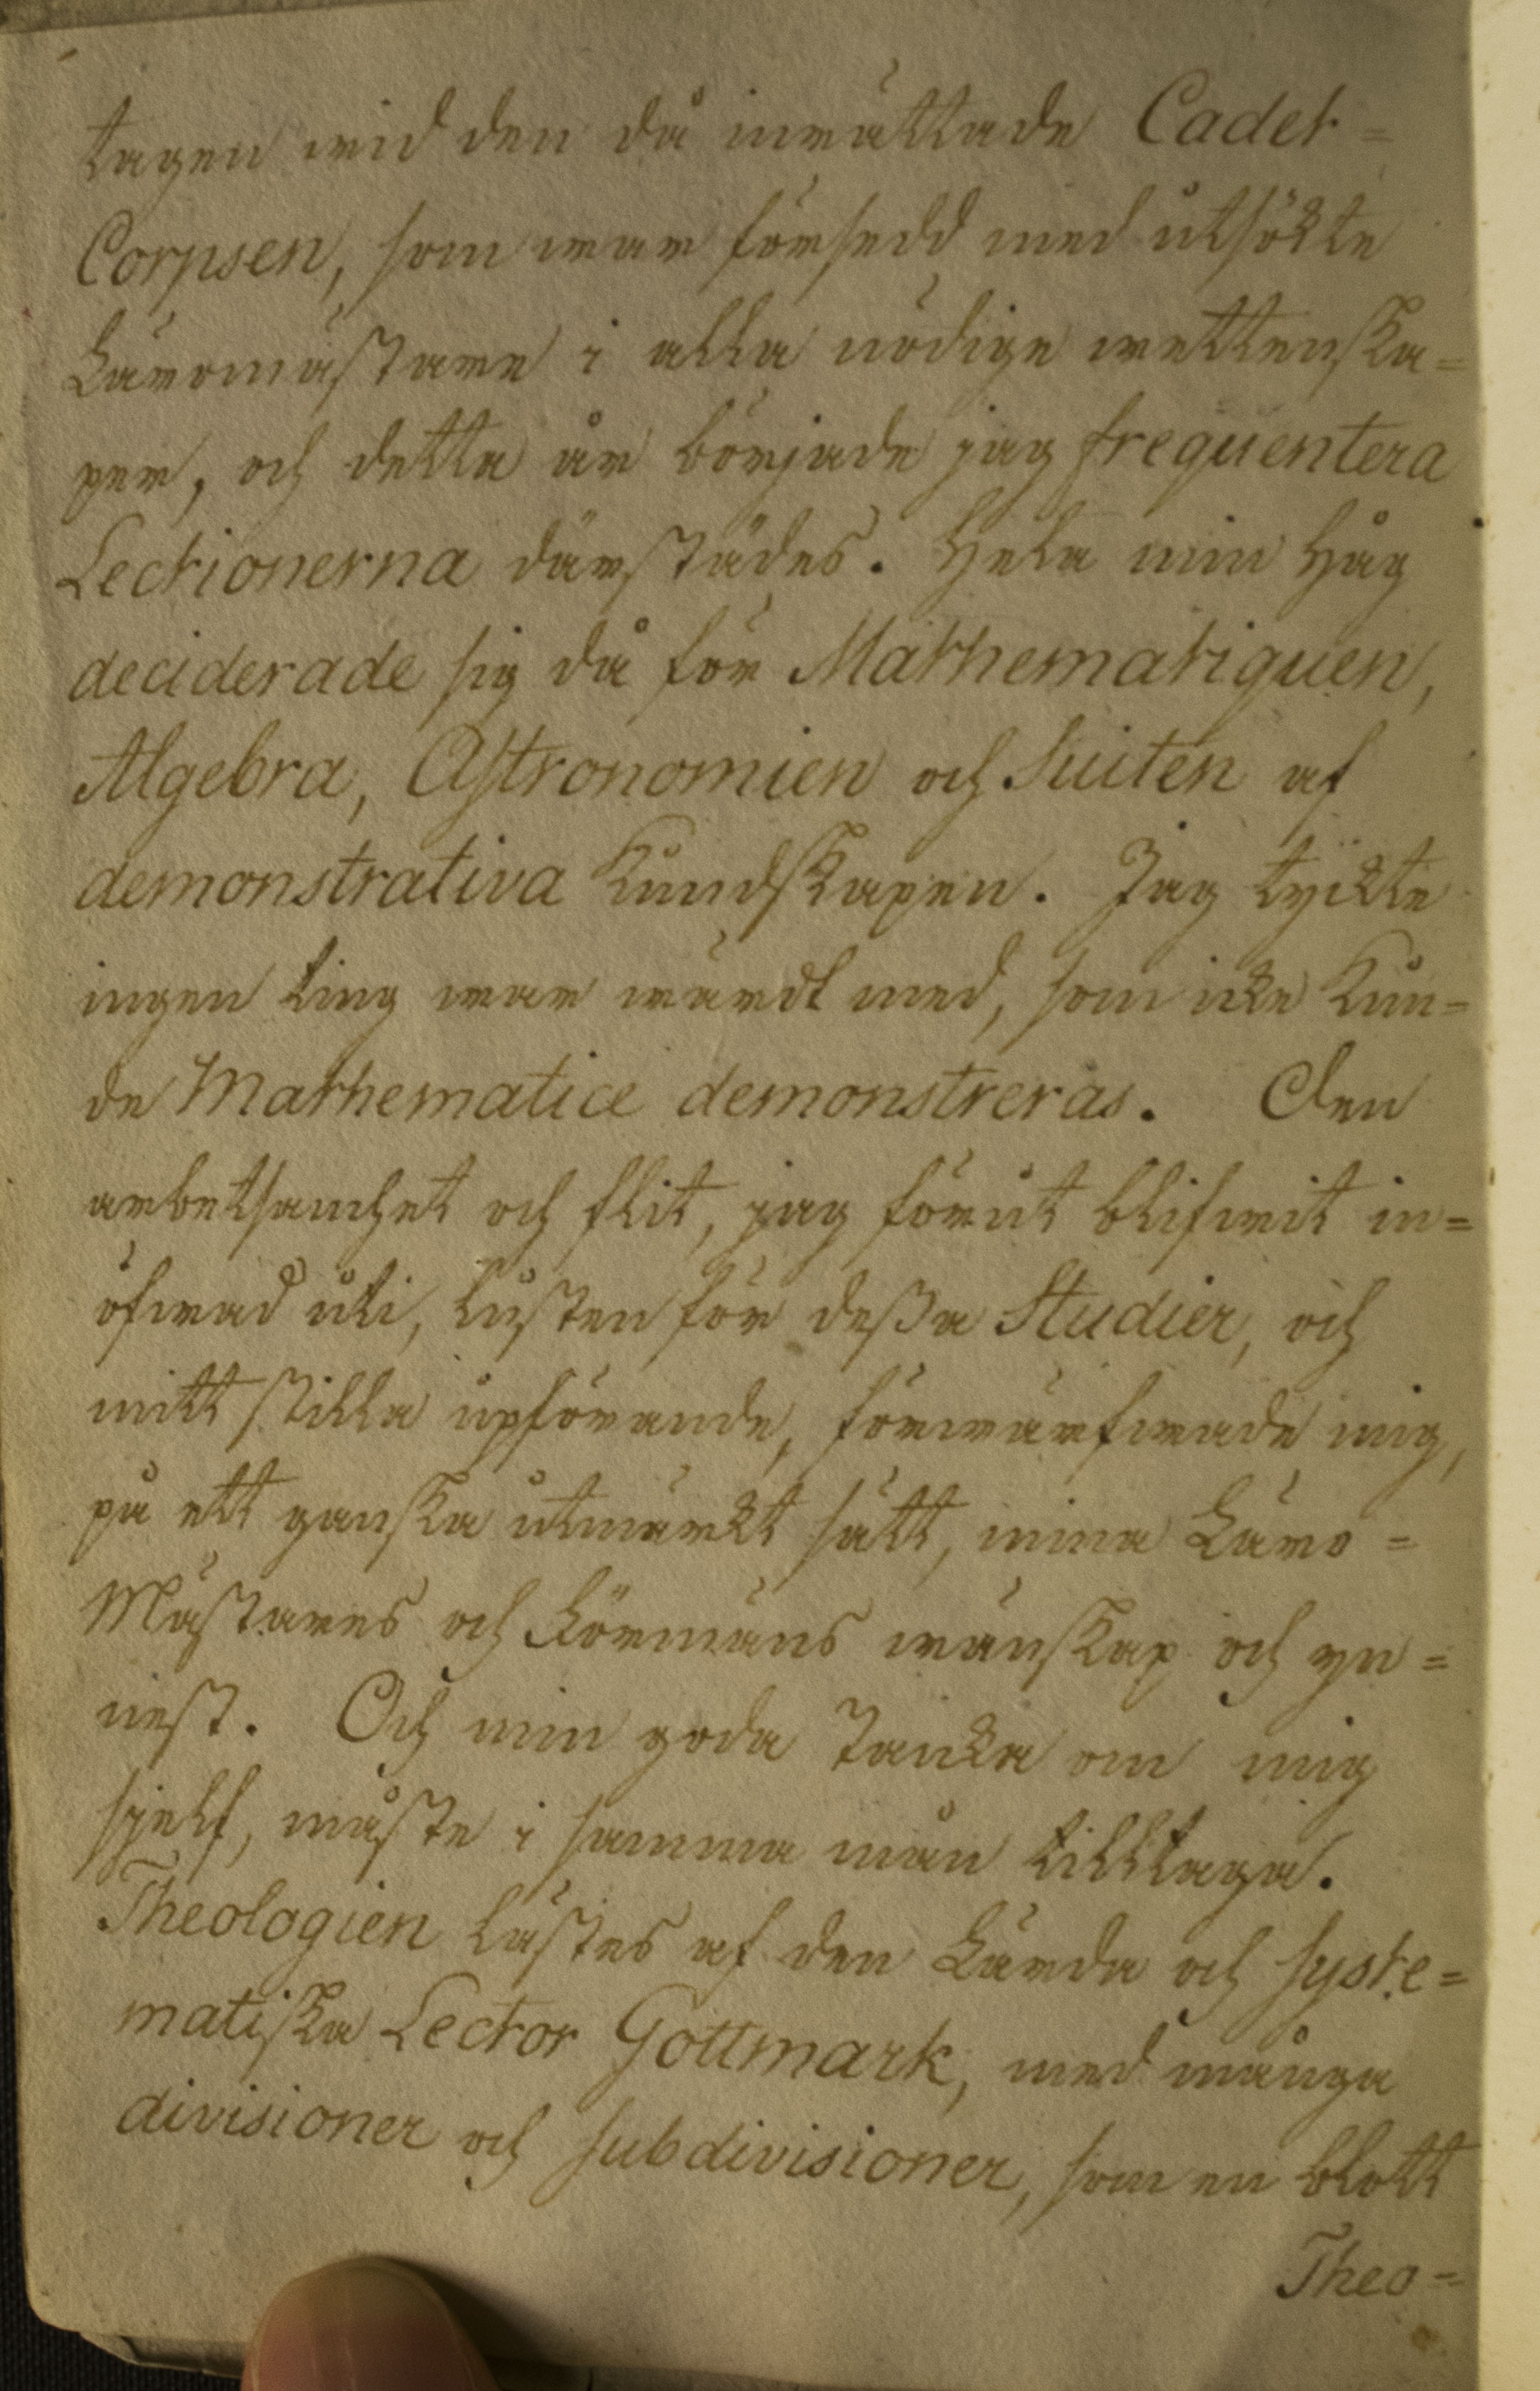 tagen wid den då inrättade Cadet=
Corpsen, som war försedd med utsökte
Läromästare i alla nödige wettenska=
per, och detta år började jag frequentera
Lectionerna därstädes. Hela min Håg
deciderade sig då för Mathematiquen,
Algebra, Astronomien och Suiten af
demonstrativa Kundskapen. Jag tyckte
ingen ting war wärdt med, som icke Kun=
de Mathematice demonstreras. Den
arbetsamhet och flit, jag förut blifwit in=
öfwad uti, lusten för dessa Studier, och
mitt stilla upförande, förwärfwade mig,
på ett ganska utmärkt sätt, mina Läro=
Mästares och Förmäns wänskap och yn=
nest. Och min goda Tanka om mig
sjelf, måste i samma mån tilltaga.
Theologien lästes af den Lärda och syste=
matiska Lector Gottmark, med många
divisioner och subdivisioner, som en blott
Theo=